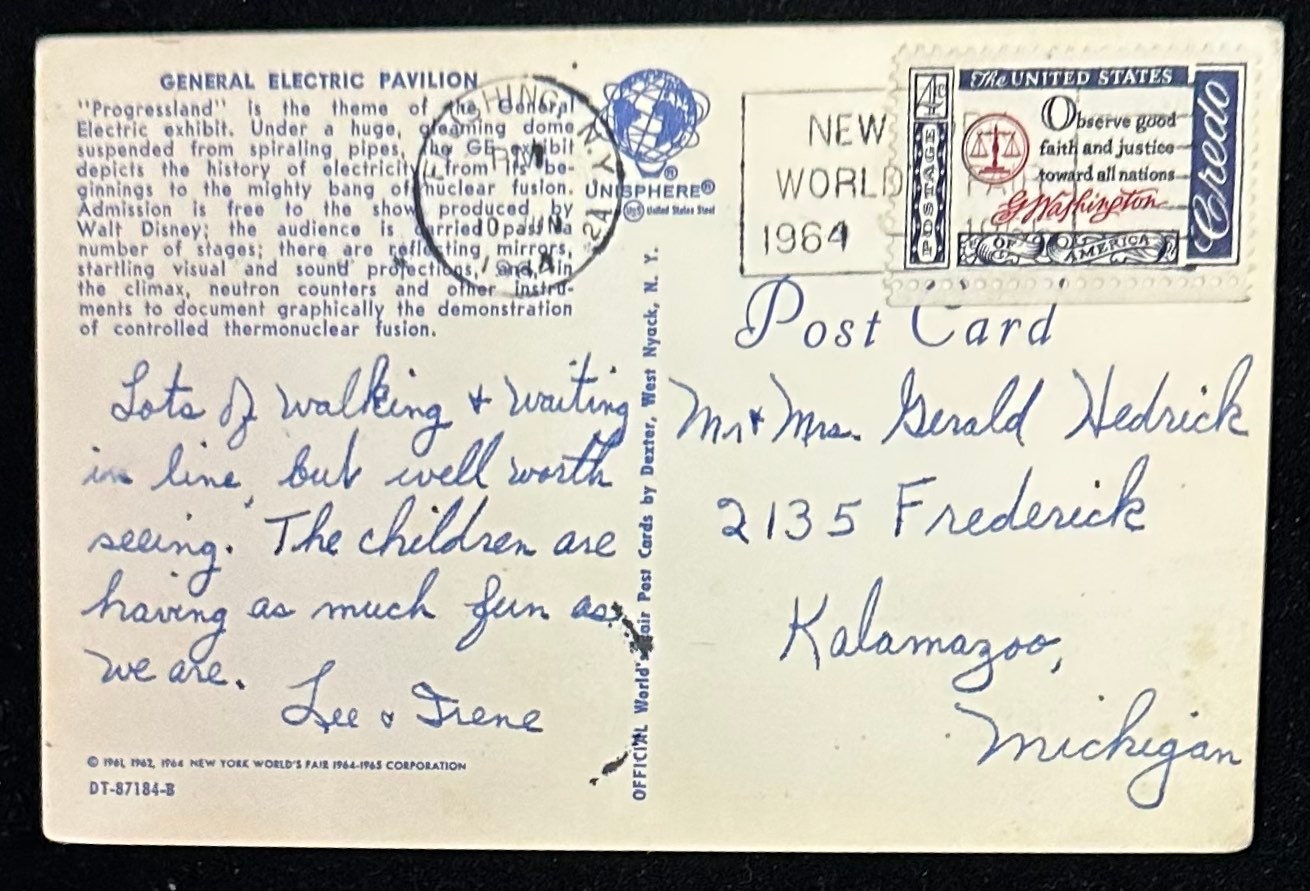 GENERAL ELECTRIC PAVILION
"Progressland" is the theme of the General
Electric exhibit. Under a huge, gleaming dome
suspended from spiraling pipes, the GE exhibit
depicts the history of electricity from its be-
ginnings to the mighty bang of nuclear fusion.
Admission is free to the show produced by
Walt Disney; the audience is carried past a
number of stages; there are reflecting mirrors,
startling visual and sound projections, and, in
the climax, neutron counters and other instru-
ments to document graphically the demonstration
of controlled thermonuclear fusion.
Lots of walking & waiting
in line, but well worth
seeing. The children are
having as much fun as
we are.
Lee & Irene
© 1961, 1962, 1964 NEW YORK WORLD'S FAIR 1964-1965 CORPORATION
DT-87184-B
N.Y.
UNISPHERE®
USS United States Steel
OFFICIAL World's Fair Post Cards by Dexter, West Nyack, N. Y.
NEW
WORLD
1964
4¢
POSTAGE
The UNITED STATES
Observe good
faith and justice
toward all nations
G Washington
OF AMERICA
Credo
Post Card
Mr & Mrs. Gerald Hedrick
2135 Frederick
Kalamazoo,
Michigan